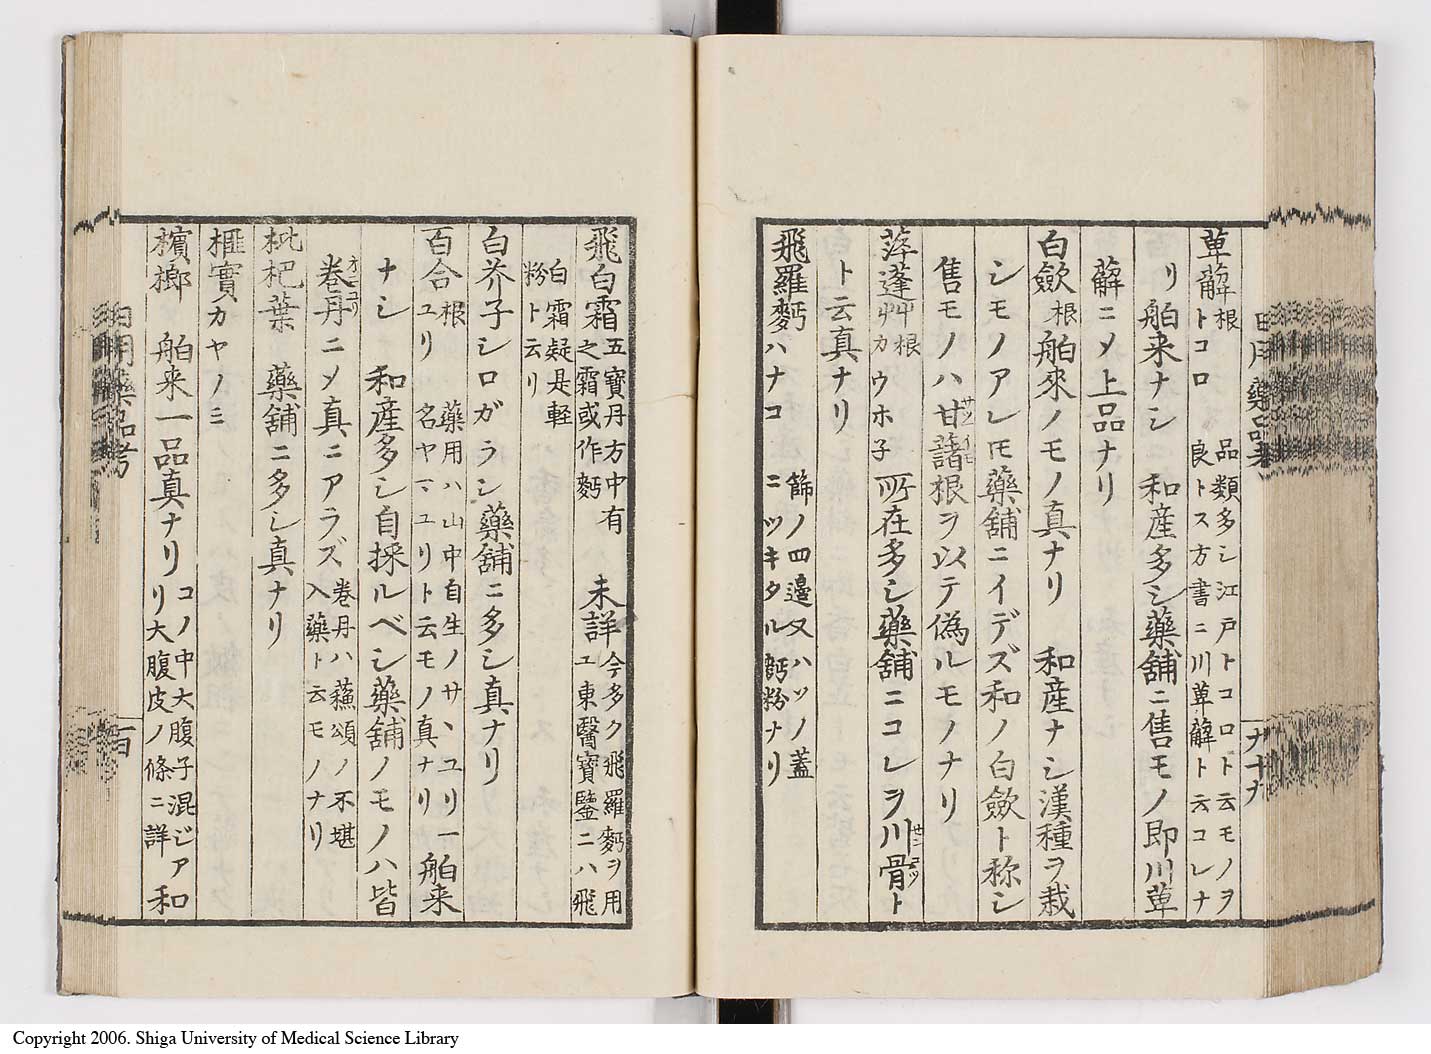 萆薢根トコロ 品類多シ江戸トコロト云モノヲ
良トス方書ニ川萆薢ト云コレナ
リ 舶来ナシ 和産多シ藥舖ニ售モノ即川萆
薢ニメ上品ナリ
白斂根 舶來ノモノ真ナリ 和産ナシ漢種ヲ栽
シモノアレ𪜈藥舖ニイデズ和ノ白斂ト称シ
售モノハ甘藷根ヲ以テ偽ルモノナリ
萍蓬艸根カウホ子 所在多シ藥舖ニコレヲ川骨ト
ト云真ナリ
飛羅麪ハナコ 篩ノ四邉又ハツノ蓋
ニツキタル麪粉ナリ
飛白霜五寶丹方中有 未詳今多ク飛羅麪ヲ用
之霜或作麪 ユ東醫寶鑒ニハ飛
白霜疑是軽
粉ト云リ
白芥子シロガラシ藥舖ニ多シ真ナリ
百合根ユリ 藥用ハ山中自生ノサヽユリ一 舶来
名ヤマユリト云モノ真ナリ
ナシ 和産多シ自採ルベシ藥舖ノモノハ皆
巻丹ニメ真ニアラズ巻丹ハ蘓頌ノ不堪
入藥ト云モノナリ
枇杷葉 藥舖ニ多シ真ナリ
榧實カヤノミ
檳榔 舶来一品真ナリコノ中大腹子混ジア 和
リ大腹皮ノ條ニ詳
日用藥品考
Copyright 2006. Shiga University of Medical Science Library